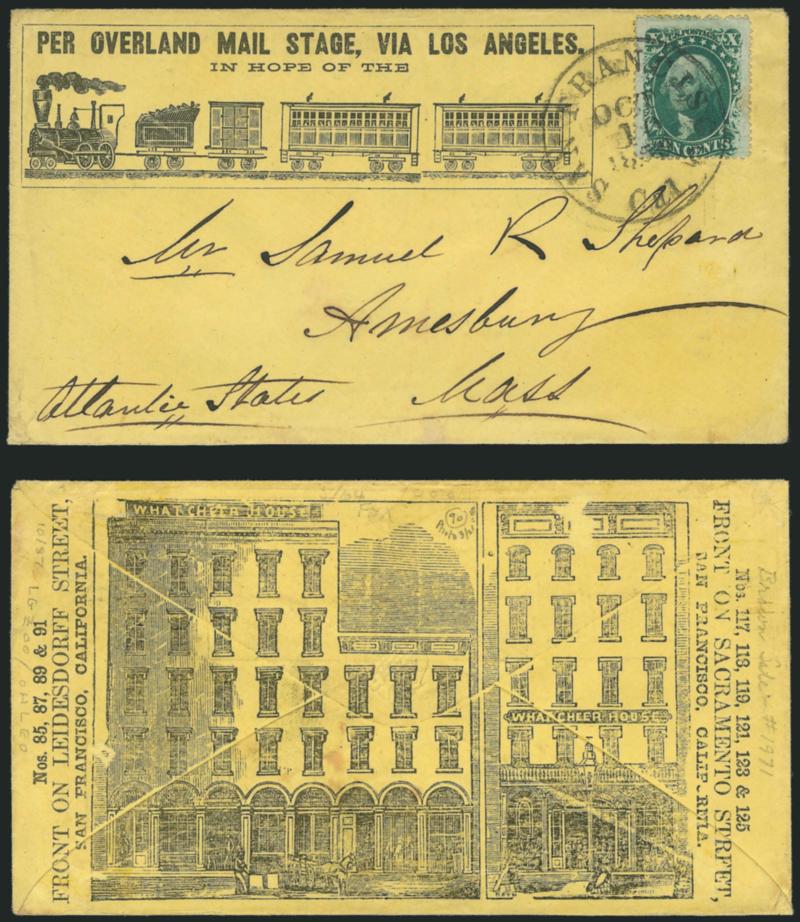 PER OVERLAND MAIL STAGE, VIA LOS ANGELES.
IN HOPE OF THE
X X
U.S. POSTAGE
TEN CENTS
SAN FRANCISCO
OCT
1
CAL
Mr Samuel R Shepard
Amesbury
Mass
Atlantic States
WHAT CHEER HOUSE
Nos. 85, 87, 89 & 91
FRONT ON LEIDESDORFF STREET,
SAN FRANCISCO, CALIFORNIA.
WHAT CHEER HOUSE
Nos. 117, 118, 119, 121, 123 & 125
FRONT ON SACRAMENTO STREET,
SAN FRANCISCO, CALIFORNIA.